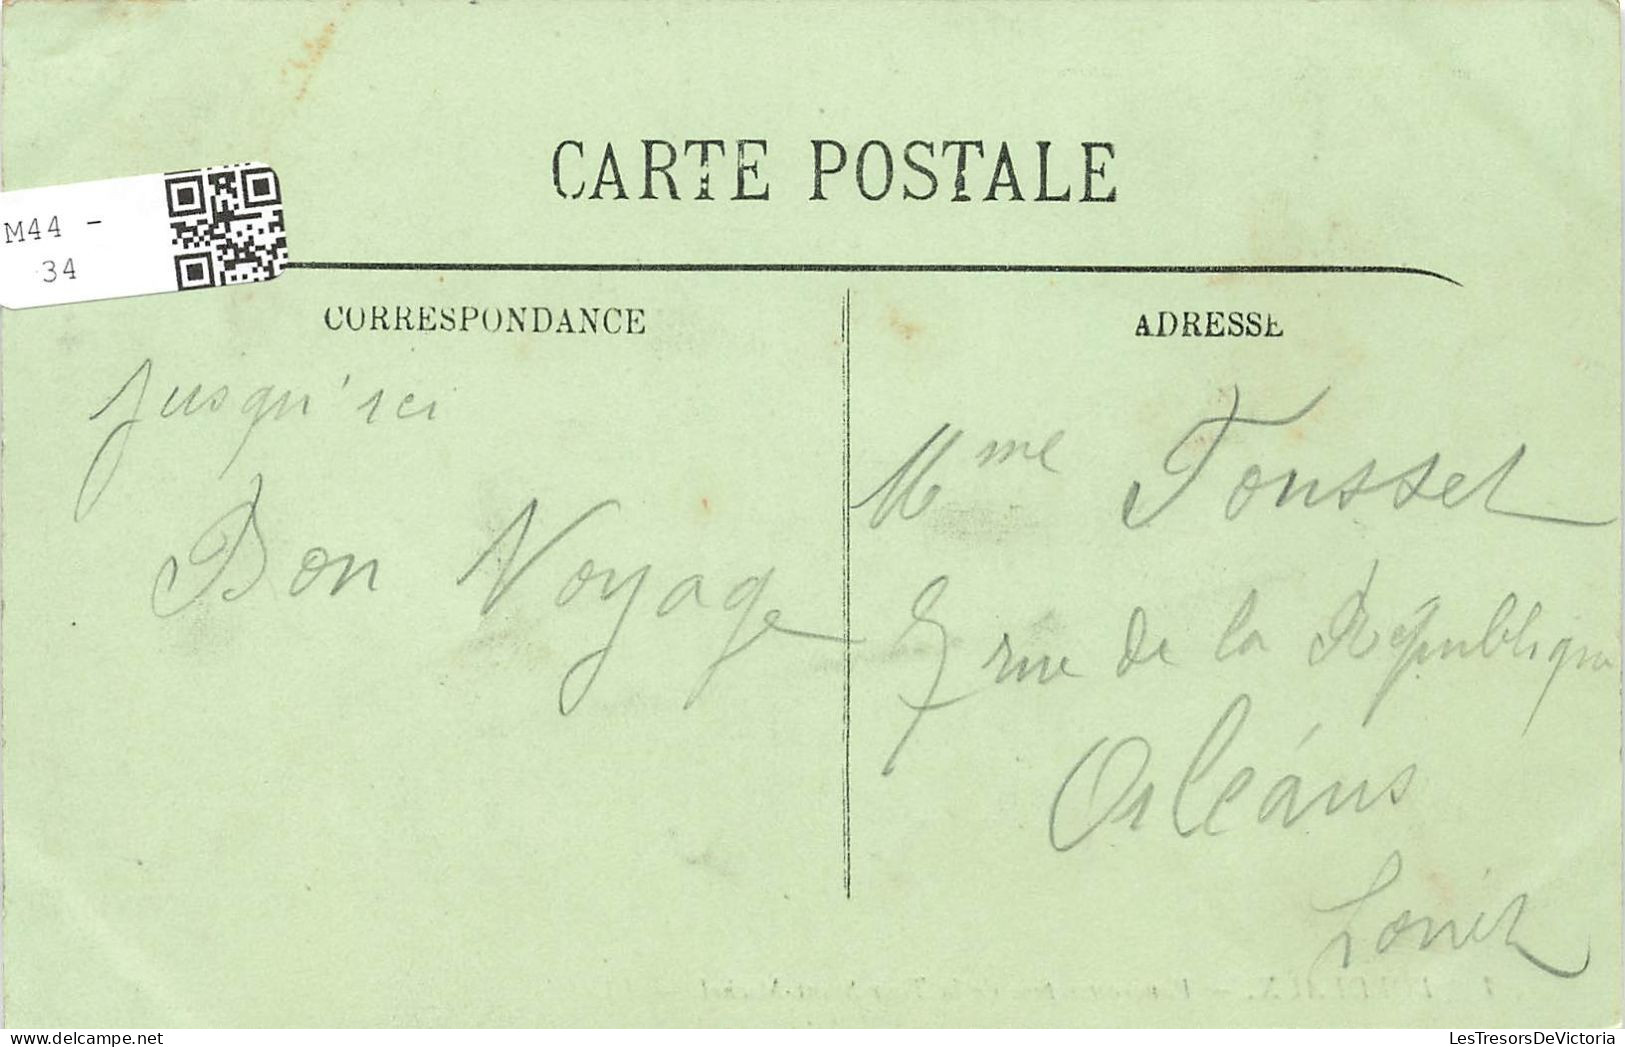 CARTE POSTALE
M44 -
34
CORRESPONDANCE
jusqu'ici
Bon Voyage
ADRESSE
Mme Tousset
9 rue de la République
Orléans
Loiret
LesTresorsDeVictoria